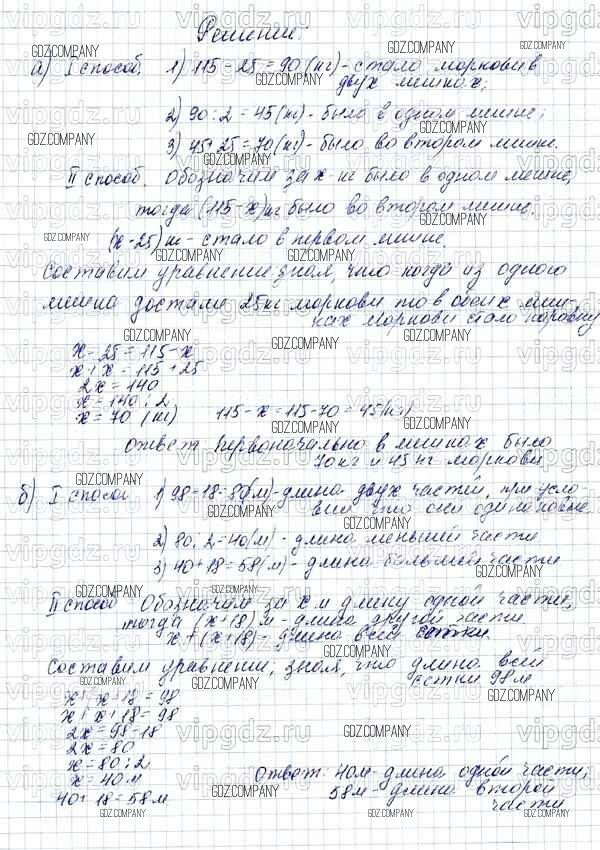 Решение:
а) I способ. 1) 115 - 25 = 90 (кг) - стало моркови в
двух мешках;
2) 90 : 2 = 45 (кг) - было в одном мешке;
3) 45 + 25 = 70 (кг) - было во втором мешке.
II способ. Обозначим за x кг было в одном мешке,
тогда (115 - x) кг было во втором мешке,
(x - 25) кг - стало в первом мешке.
Составим уравнение зная, что когда из одного
мешка достали 25 кг моркови то в обеих меш-
ках моркови стало поровну
x - 25 = 115 - x
x + x = 115 + 25
2x = 140
x = 140 : 2
x = 70 (кг) 115 - x = 115 - 70 = 45 (кг)
Ответ: Первоначально в мешках было
70 кг и 45 кг моркови
б) I способ 1) 98 - 18 = 80 (м) - длина двух частей, при усло-
вии что они одинаковые.
2) 80 : 2 = 40 (м) - длина меньшей части
3) 40 + 18 = 58 (м) - длина большей части
II способ Обозначим за x м длину одной части,
тогда (x + 18) м - длина другой части
x + (x + 18) - длина всей сетки.
Составим уравнение, зная, что длина всей
сетки 98 м
x + x + 18 = 98
x + x + 18 = 98
2x = 98 - 18
2x = 80
x = 80 : 2
x = 40 м
40 + 18 = 58 м
Ответ: 40 м - длина одной части;
58 м - длина второй
части
vipgdz.ru
GDZ.COMPANY